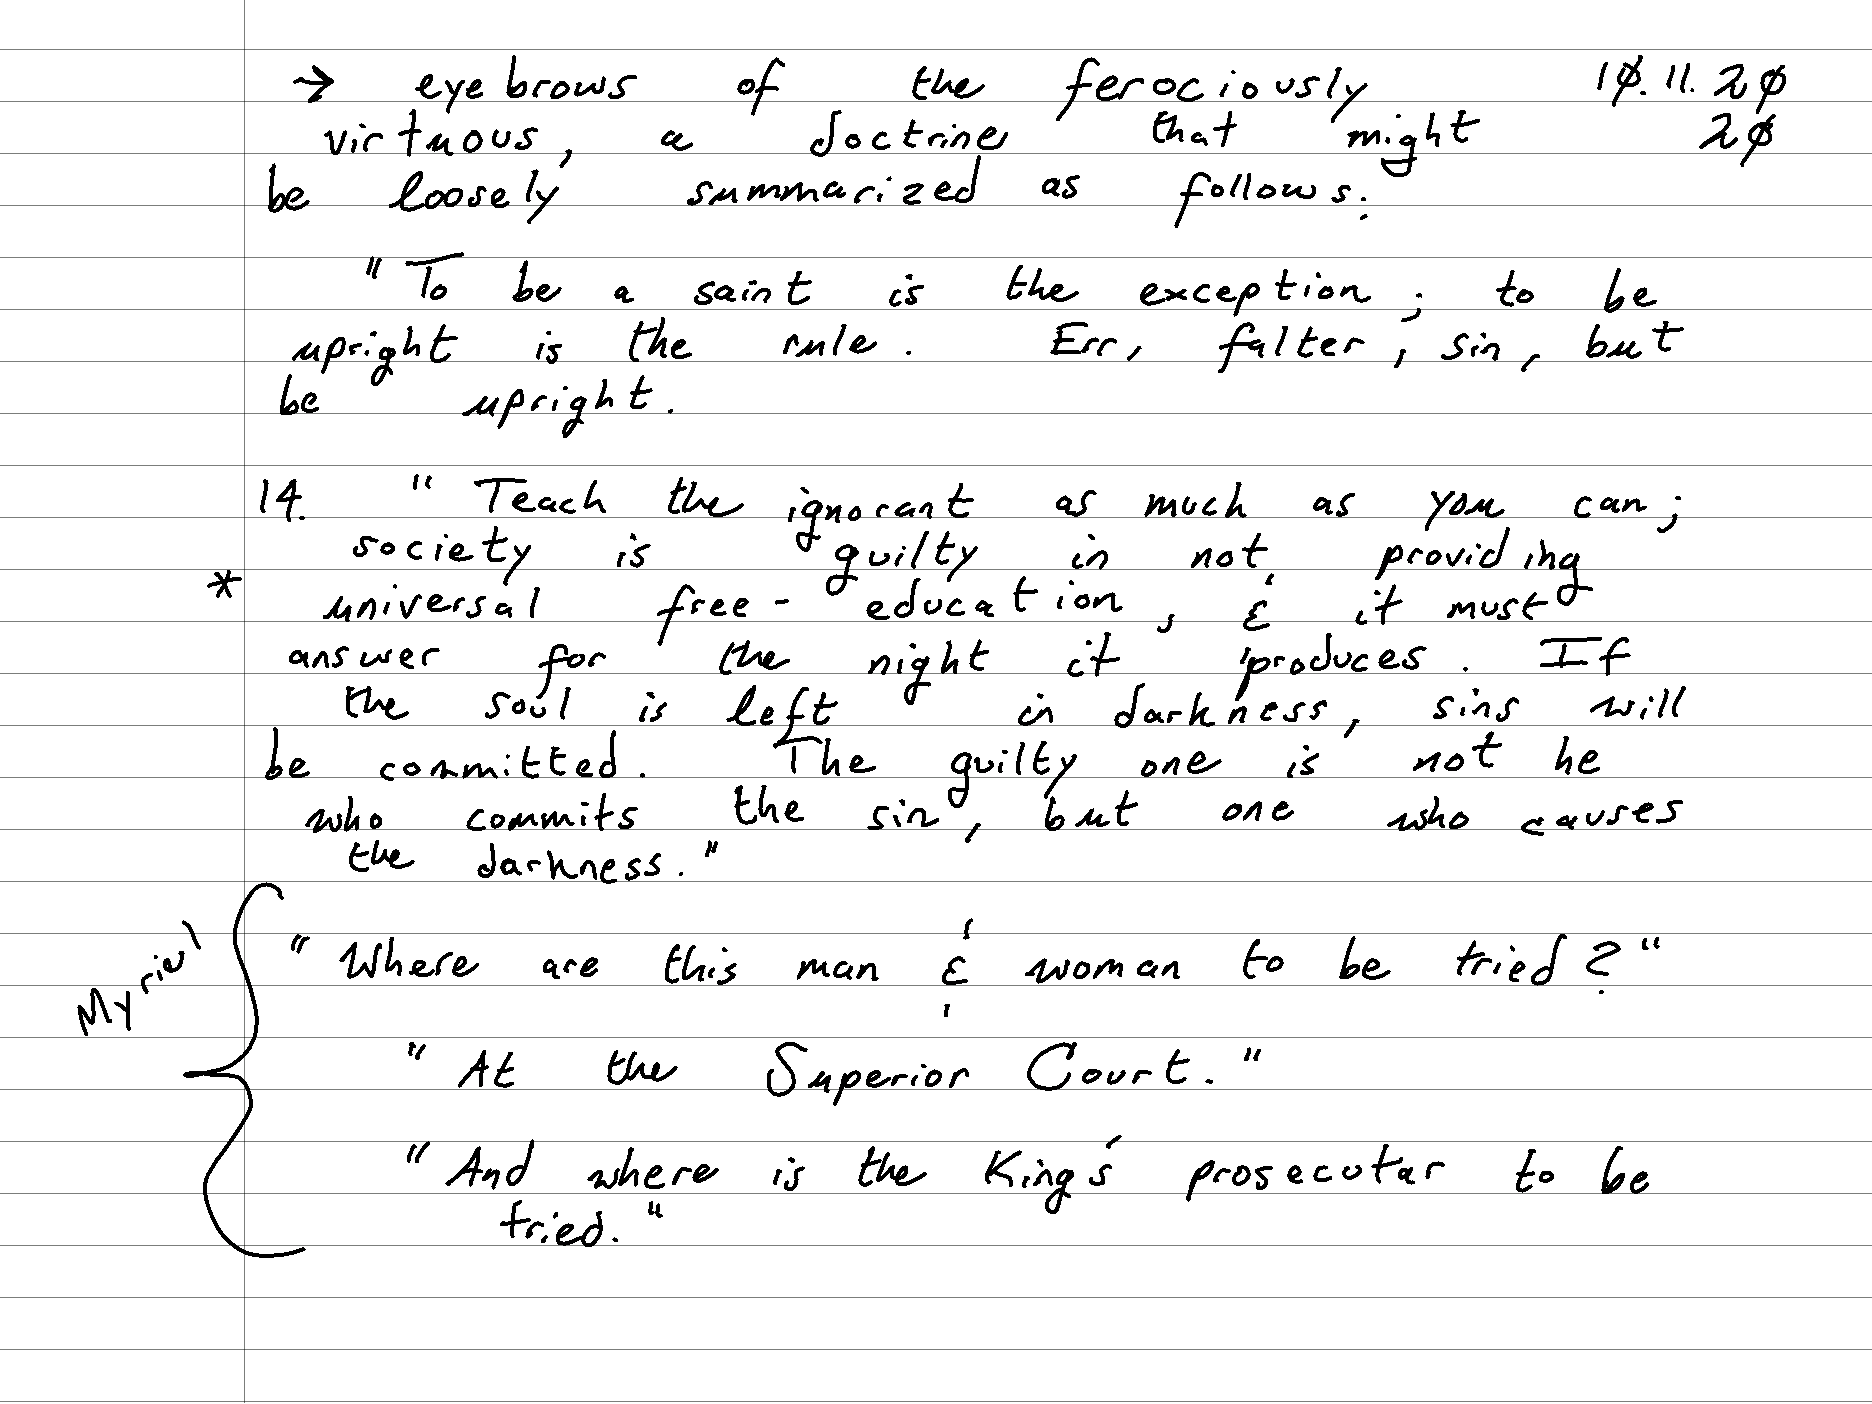 → eyebrows of the ferociously 1Ø.11.2Ø
virtuous, a doctrine that might 2Ø
be loosely summarized as follows:
"To be a saint is the exception; to be
upright is the rule. Err, falter, sin, but
be upright.
14. "Teach the ignorant as much as you can;
society is guilty in not providing
* universal free-education, & it must
answer for the night it produces. If
the soul is left in darkness, sins will
be committed. The guilty one is not he
who commits the sin, but one who causes
the darkness."
Myriel
"Where are this man & woman to be tried?"
"At the Superior Court."
"And where is the King's prosecutar to be
tried."